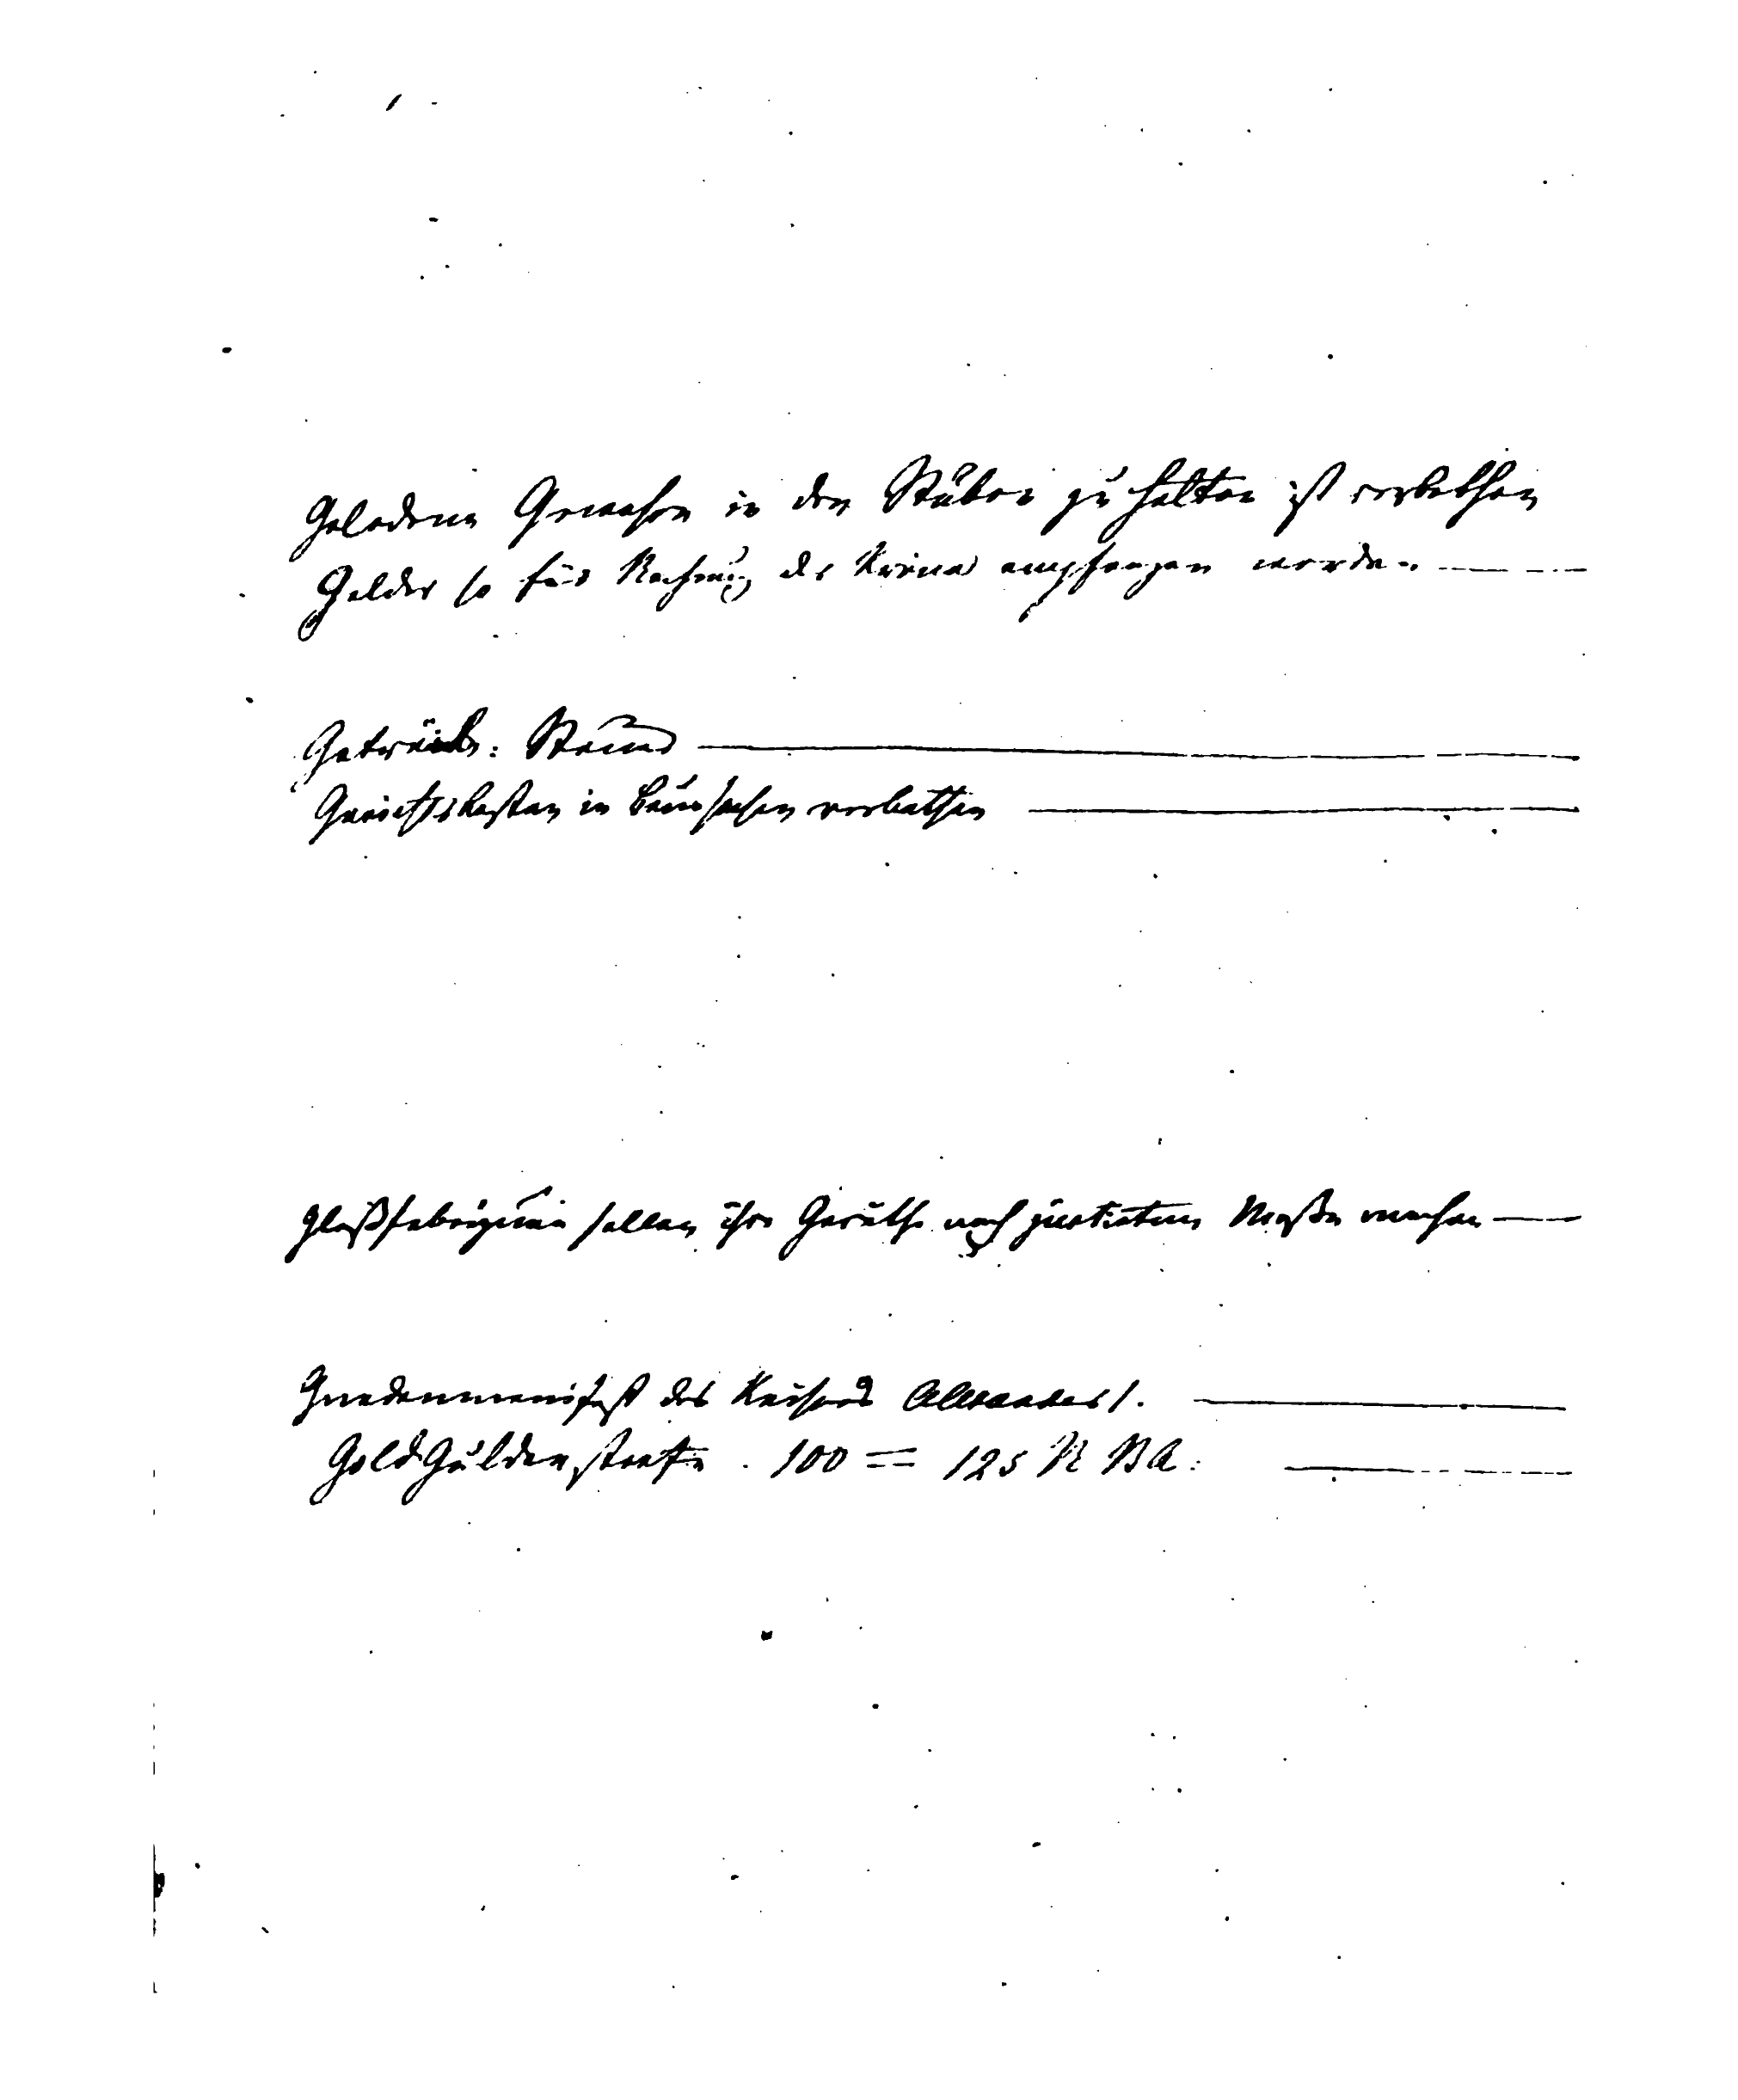 Geladene Gewehre in den Stuben zu halten ist verbothen
Gelder so für Rechnung der Krone empfangen werden
Getränk: Steuer
Gerichtskosten in Bausachen verbothen
Glaßfabriquen sollen ihre Geräthe nach justirtem Maße machen
Gnadenmanifest des Kaisers Alexander I.
Gold Gulden strafe . 100 = 125 R BA: